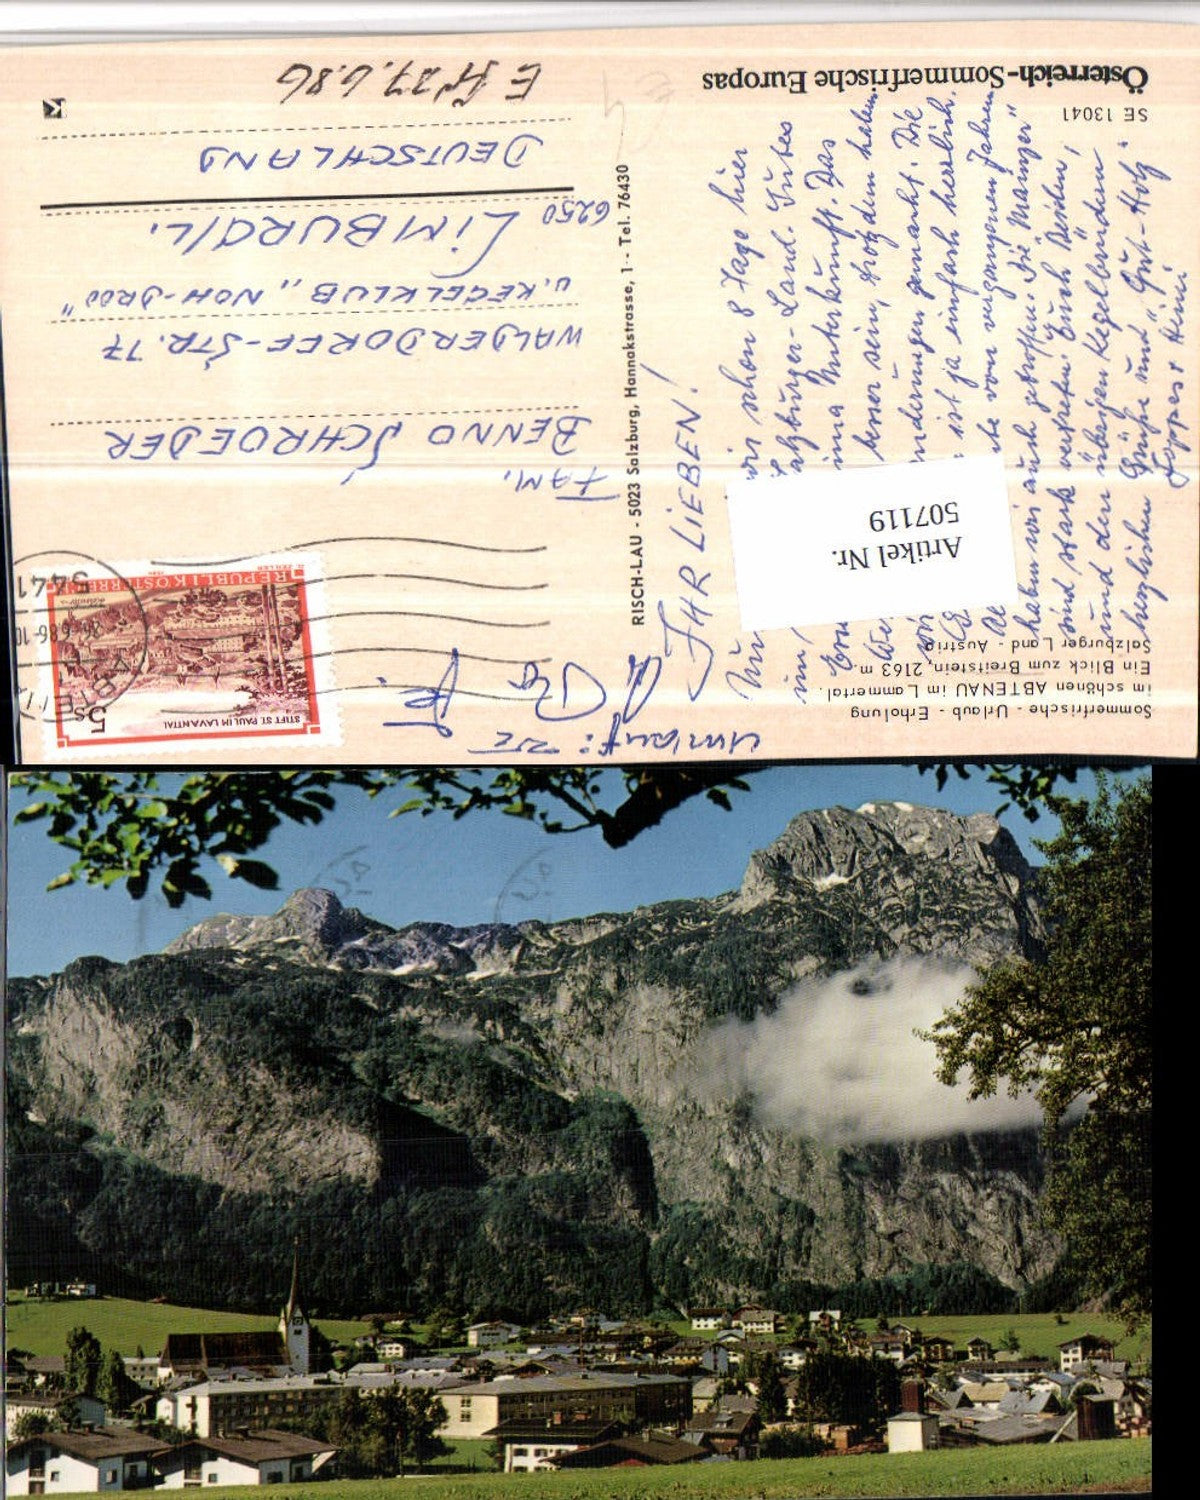 Sommerfrische - Urlaub - Erholung
im schönen ABTENAU im Lammertal.
Ein Blick zum Breitstein, 2163 m
Salzburger Land - Austria
IHR LIEBEN!
wir schon 8 Tage hier
im Salzburger-Land. Gutes
Unterkunft. Das
besser sein, trotzdem haben
gemacht. Die
ist ja einfach herrlich.
vom vergangenen Jahren
haben wir auch getroffen. Die "Mainzer"
sind stark vertreten. Euch Beiden,
und den übrigen Kegelbrüdern
herzlichen Grüße und "Gut-Holz"
Artikel Nr.
507119
SE 13041
Österreich-Sommerfrische Europas
RISCH-LAU - 5023 Salzburg, Hannakstrasse, 1 - Tel. 76430
STIFT ST. PAUL IM LAVANTTAL
5 S
REPUBLIK ÖSTERREICH
5441
FAM.
BENNO SCHROEDER
WALDERDORFF-STR. 17
U. KEGELKLUB "NOH-DROO"
6250 LIMBURG/L.
DEUTSCHLAND
27.6.86